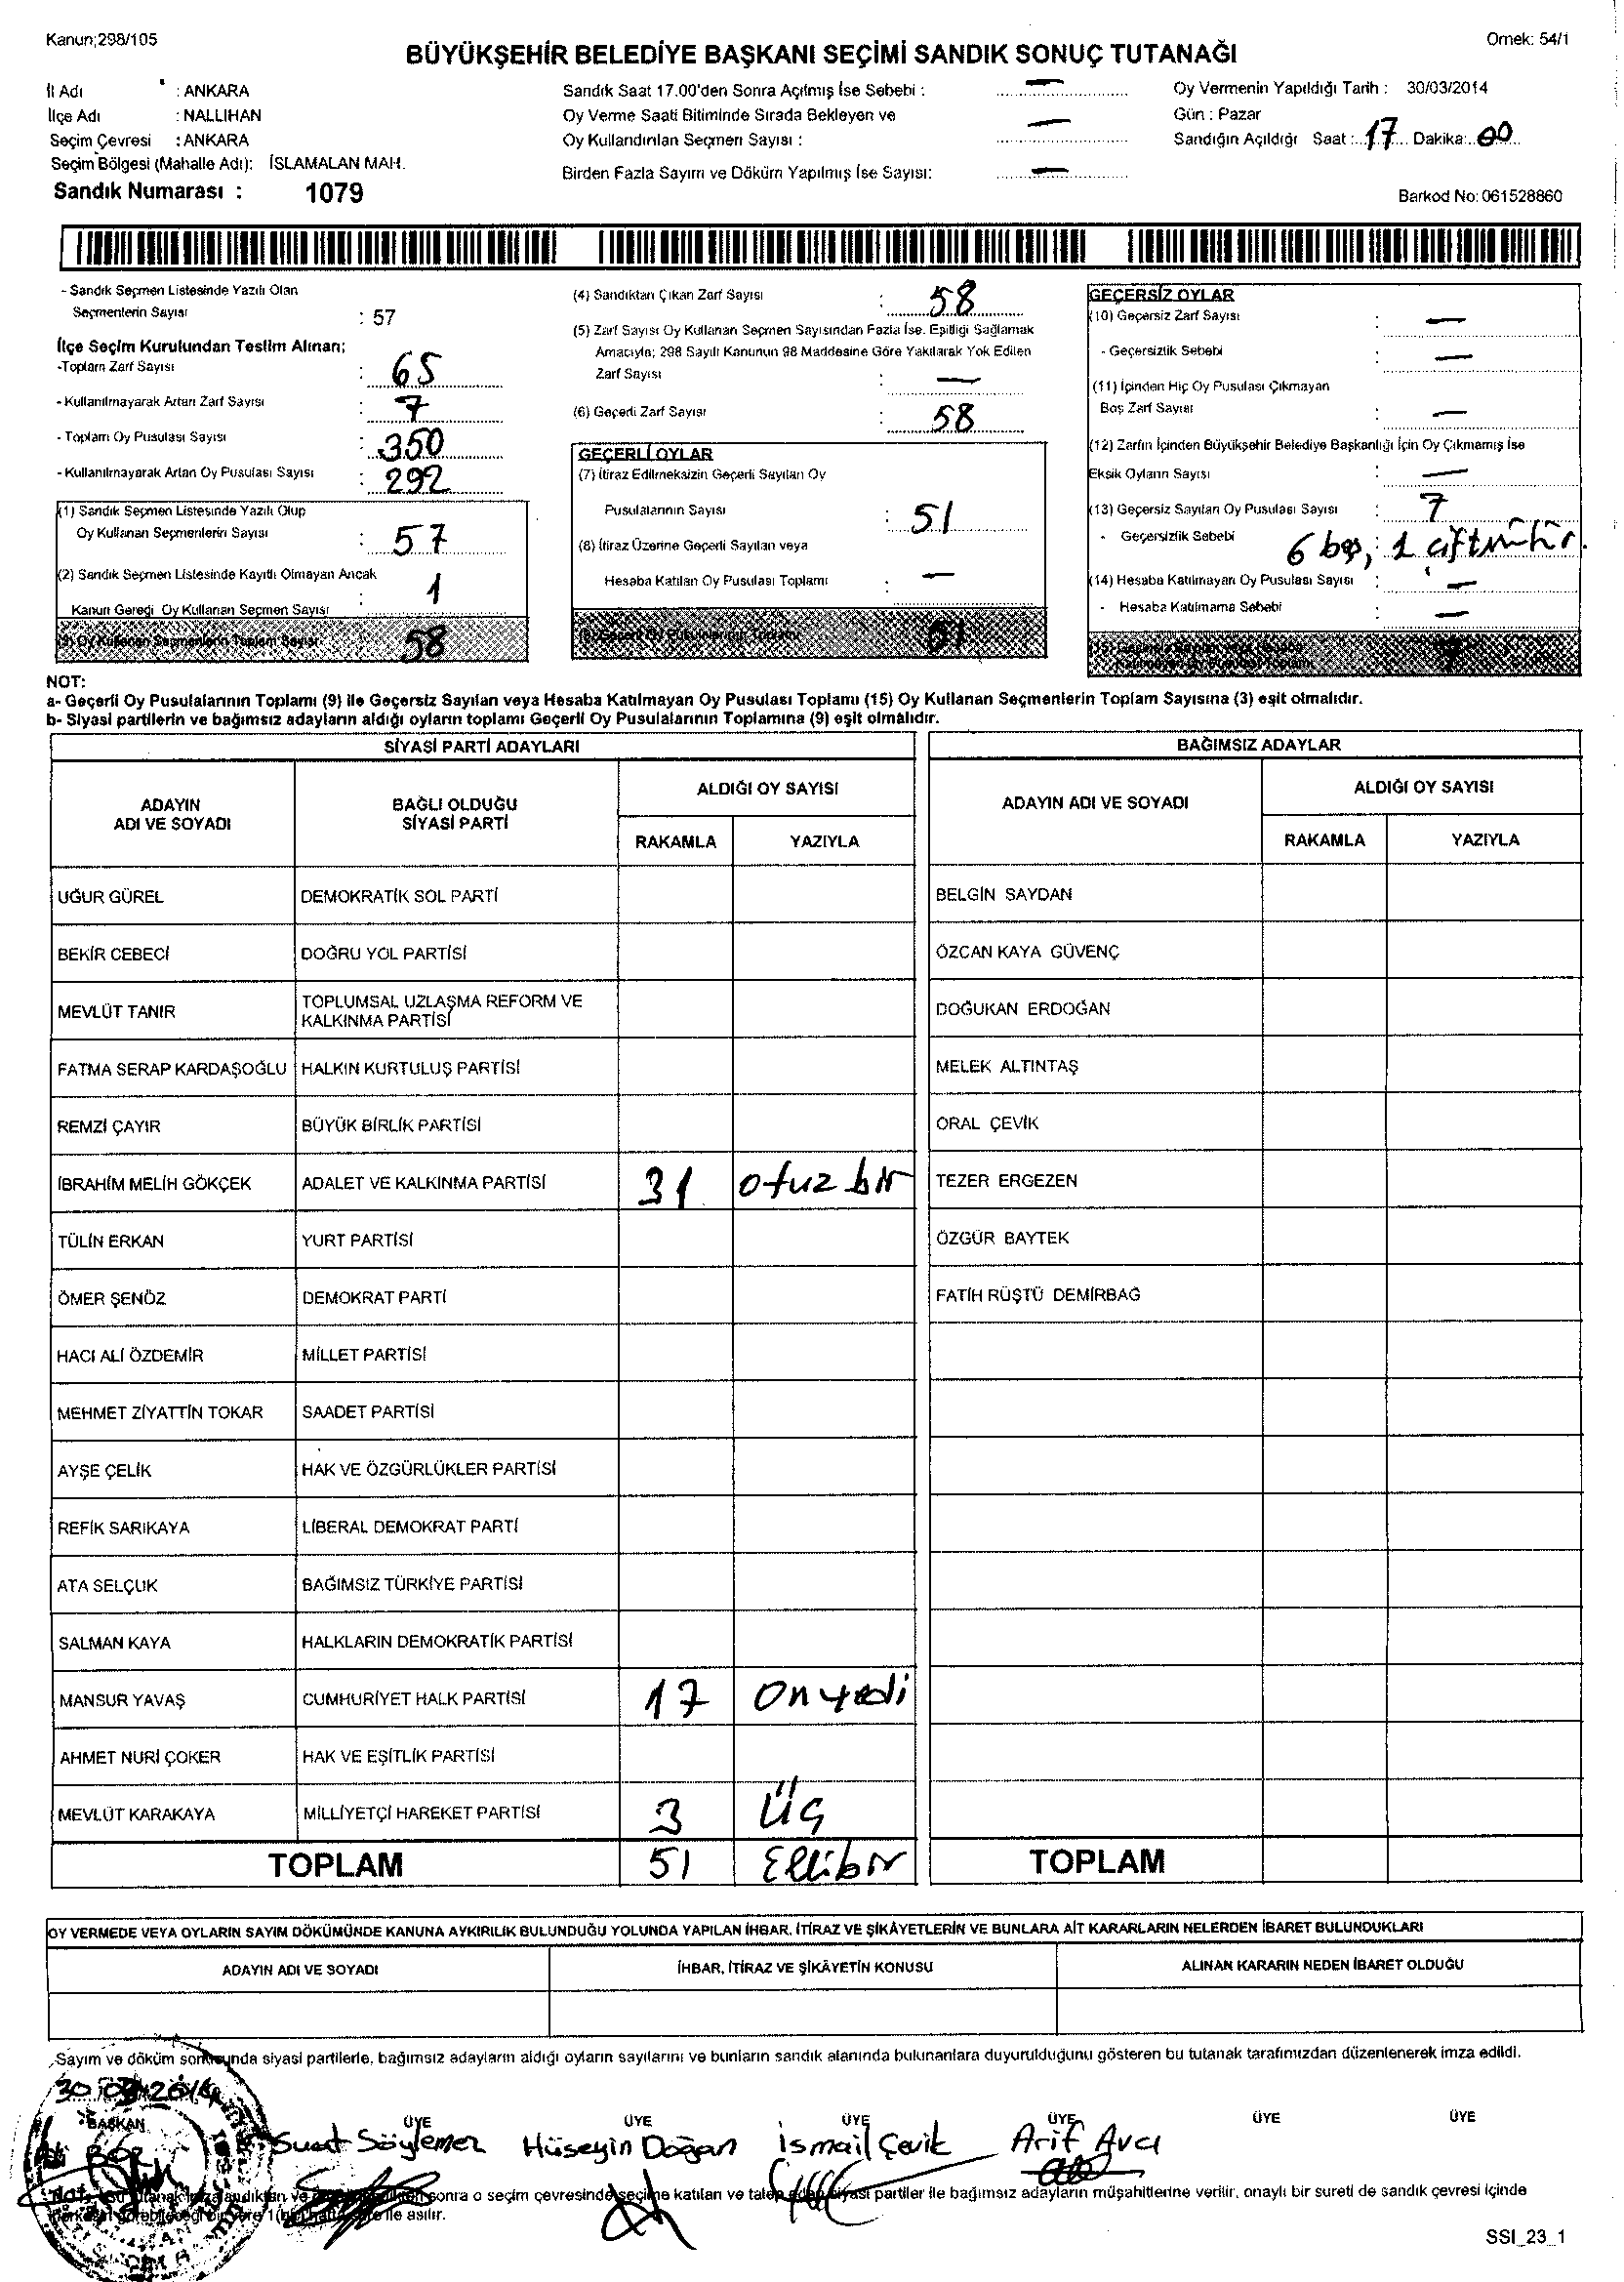 Kanun;298/105
Örnek: 54/1
BÜYÜKŞEHİR BELEDİYE BAŞKANI SEÇİMİ SANDIK SONUÇ TUTANAĞI
İl Adı : ANKARA
İlçe Adı : NALLIHAN
Seçim Çevresi : ANKARA
Seçim Bölgesi (Mahalle Adı): İSLAMALAN MAH.
Sandık Numarası : 1079
Sandık Saat 17.00'den Sonra Açılmış İse Sebebi : —
Oy Verme Saati Bitiminde Sırada Bekleyen ve
Oy Kullandırılan Seçmen Sayısı : —
Birden Fazla Sayım ve Döküm Yapılmış İse Sayısı: —
Oy Vermenin Yapıldığı Tarih : 30/03/2014
Gün : Pazar
Sandığın Açıldığı Saat : 17 Dakika: 00
Barkod No: 061528860
- Sandık Seçmen Listesinde Yazılı Olan
Seçmenlerin Sayısı : 57
İlçe Seçim Kurulundan Teslim Alınan;
-Toplam Zarf Sayısı : 65
- Kullanılmayarak Artan Zarf Sayısı : 7
- Toplam Oy Pusulası Sayısı : 350
- Kullanılmayarak Artan Oy Pusulası Sayısı : 292
(1) Sandık Seçmen Listesinde Yazılı Olup
Oy Kullanan Seçmenlerin Sayısı : 57
(2) Sandık Seçmen Listesinde Kayıtlı Olmayan Ancak
Kanun Gereği Oy Kullanan Seçmen Sayısı : 1
(3) Oy Kullanan Seçmenlerin Toplam Sayısı 58
(4) Sandıktan Çıkan Zarf Sayısı : 58
(5) Zarf Sayısı Oy Kullanan Seçmen Sayısından Fazla İse. Eşitliği Sağlamak
Amacıyla; 298 Sayılı Kanunun 98 Maddesine Göre Yakılarak Yok Edilen
Zarf Sayısı : —
(6) Geçerli Zarf Sayısı : 58
GEÇERLİ OYLAR
(7) İtiraz Edilmeksizin Geçerli Sayılan Oy
Pusulalarının Sayısı : 51
(8) İtiraz Üzerine Geçerli Sayılan veya
Hesaba Katılan Oy Pusulası Toplamı : —
(9) Geçerli Oy Pusulalarının Toplamı 51
GEÇERSİZ OYLAR
(10) Geçersiz Zarf Sayısı : —
- Geçersizlik Sebebi : —
(11) İçinden Hiç Oy Pusulası Çıkmayan
Boş Zarf Sayısı : —
(12) Zarfın İçinden Büyükşehir Belediye Başkanlığı İçin Oy Çıkmamış İse
Eksik Oyların Sayısı : —
(13) Geçersiz Sayılan Oy Pusulası Sayısı : 7
- Geçersizlik Sebebi 6 boş, 1 çift mühür.
(14) Hesaba Katılmayan Oy Pusulası Sayısı : —
- Hesaba Katılmama Sebebi : —
(15) Geçersiz Sayılan veya Hesaba
Katılmayan Oy Pusulası Toplamı 7
NOT:
a- Geçerli Oy Pusulalarının Toplamı (9) ile Geçersiz Sayılan veya Hesaba Katılmayan Oy Pusulası Toplamı (15) Oy Kullanan Seçmenlerin Toplam Sayısına (3) eşit olmalıdır.
b- Siyasi partilerin ve bağımsız adayların aldığı oyların toplamı Geçerli Oy Pusulalarının Toplamına (9) eşit olmalıdır.
SİYASİ PARTİ ADAYLARI
ADAYIN ADI VE SOYADI
BAĞLI OLDUĞU SİYASİ PARTİ
ALDIĞI OY SAYISI
RAKAMLA YAZIYLA
UĞUR GÜREL DEMOKRATİK SOL PARTİ
BEKİR CEBECİ DOĞRU YOL PARTİSİ
MEVLÜT TANIR TOPLUMSAL UZLAŞMA REFORM VE
KALKINMA PARTİSİ
FATMA SERAP KARDAŞOĞLU HALKIN KURTULUŞ PARTİSİ
REMZİ ÇAYIR BÜYÜK BİRLİK PARTİSİ
İBRAHİM MELİH GÖKÇEK ADALET VE KALKINMA PARTİSİ 31 otuz bir
TÜLİN ERKAN YURT PARTİSİ
ÖMER ŞENÖZ DEMOKRAT PARTİ
HACI ALİ ÖZDEMİR MİLLET PARTİSİ
MEHMET ZİYATTİN TOKAR SAADET PARTİSİ
AYŞE ÇELİK HAK VE ÖZGÜRLÜKLER PARTİSİ
REFİK SARIKAYA LİBERAL DEMOKRAT PARTİ
ATA SELÇUK BAĞIMSIZ TÜRKİYE PARTİSİ
SALMAN KAYA HALKLARIN DEMOKRATİK PARTİSİ
MANSUR YAVAŞ CUMHURİYET HALK PARTİSİ 17 On yedi
AHMET NURİ ÇOKER HAK VE EŞİTLİK PARTİSİ
MEVLÜT KARAKAYA MİLLİYETÇİ HAREKET PARTİSİ 3 Üç
TOPLAM 51 Ellibir
BAĞIMSIZ ADAYLAR
ADAYIN ADI VE SOYADI
ALDIĞI OY SAYISI
RAKAMLA YAZIYLA
BELGİN SAYDAN
ÖZCAN KAYA GÜVENÇ
DOĞUKAN ERDOĞAN
MELEK ALTINTAŞ
ORAL ÇEVİK
TEZER ERGEZEN
ÖZGÜR BAYTEK
FATİH RÜŞTÜ DEMİRBAĞ
TOPLAM
OY VERMEDE VEYA OYLARIN SAYIM DÖKÜMÜNDE KANUNA AYKIRILIK BULUNDUĞU YOLUNDA YAPILAN İHBAR, İTİRAZ VE ŞİKÂYETLERİN VE BUNLARA AİT KARARLARIN NELERDEN İBARET BULUNDUKLARI
ADAYIN ADI VE SOYADI
İHBAR, İTİRAZ VE ŞİKÂYETİN KONUSU
ALINAN KARARIN NEDEN İBARET OLDUĞU
Sayım ve döküm sonucunda siyasi partilerle, bağımsız adayların aldığı oyların sayılarını ve bunların sandık alanında bulunanlara duyurulduğunu gösteren bu tutanak tarafımızdan düzenlenerek imza edildi.
30.03.2014
BAŞKAN ÜYE ÜYE ÜYE ÜYE ÜYE ÜYE
Suat Söylemez Hüseyin Doğan İsmail Çevik Arif Avcı
sonra o seçim çevresinde seçime katılan ve talep eden siyasi partiler ile bağımsız adayların müşahitlerine verilir, onaylı bir sureti de sandık çevresi içinde
ile asılır.
SSI_23_1